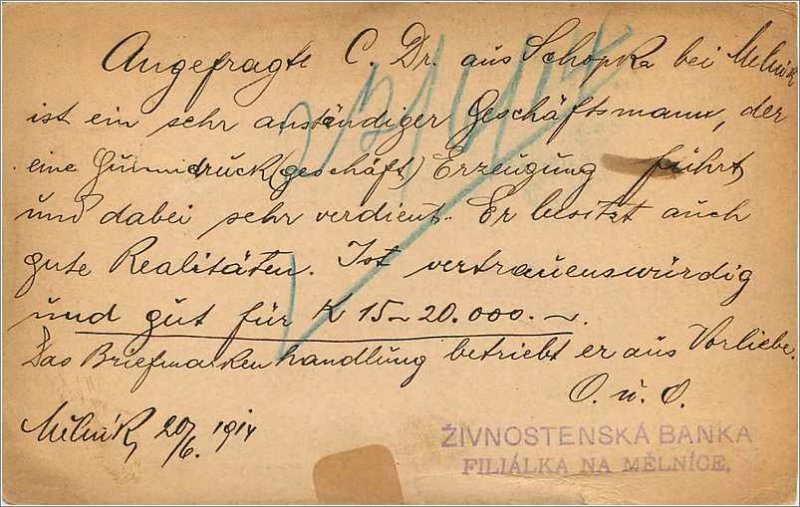 Angefragte C. Dr. aus Schopka bei Melnik
ist ein sehr anständiger Geschäftsmann, der
eine Gummidruck(geschäft) Erzeugung führt,
und dabei sehr verdient. Er besitzt auch
gute Realitäten. Ist vertrauenswürdig
und gut für K 15-20.000.-.
Das Briefmarkenhandlung betriebt er aus Vorliebe.
O. u. O.
Mělník, 20/6. 1914
ŽIVNOSTENSKÁ BANKA
FILIÁLKA NA MĚLNÍCE,